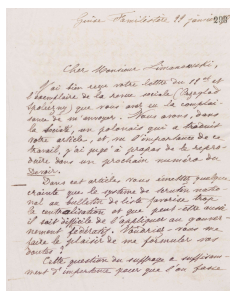 Guise Familistère 29 janvier
Cher Monsieur Limanowski,
J'ai bien reçu votre lettre du 11 et
l'exemplaire de la revue sociale (Przegląd
społeczny) que vous avez eu la complai-
sance de m'envoyer. Nous avons, dans
la Société, un polonais qui a traduit
votre article, et vu l'importance de ce
travail, j'ai jugé à propos de le repro-
duire dans un prochain numéro du
Devoir.
Dans cet article vous émettez quelque
crainte que le système de scrutin natio-
nal au bulletin de liste favorise trop
la centralisation et que peut-être aussi
il soit difficile de l'appliquer au gouver-
nement fédératif. Voudriez-vous me
faire le plaisir de me formuler vos
doutes ?
Cette question du suffrage a suffisam-
ment d'importance pour que l'on fasse